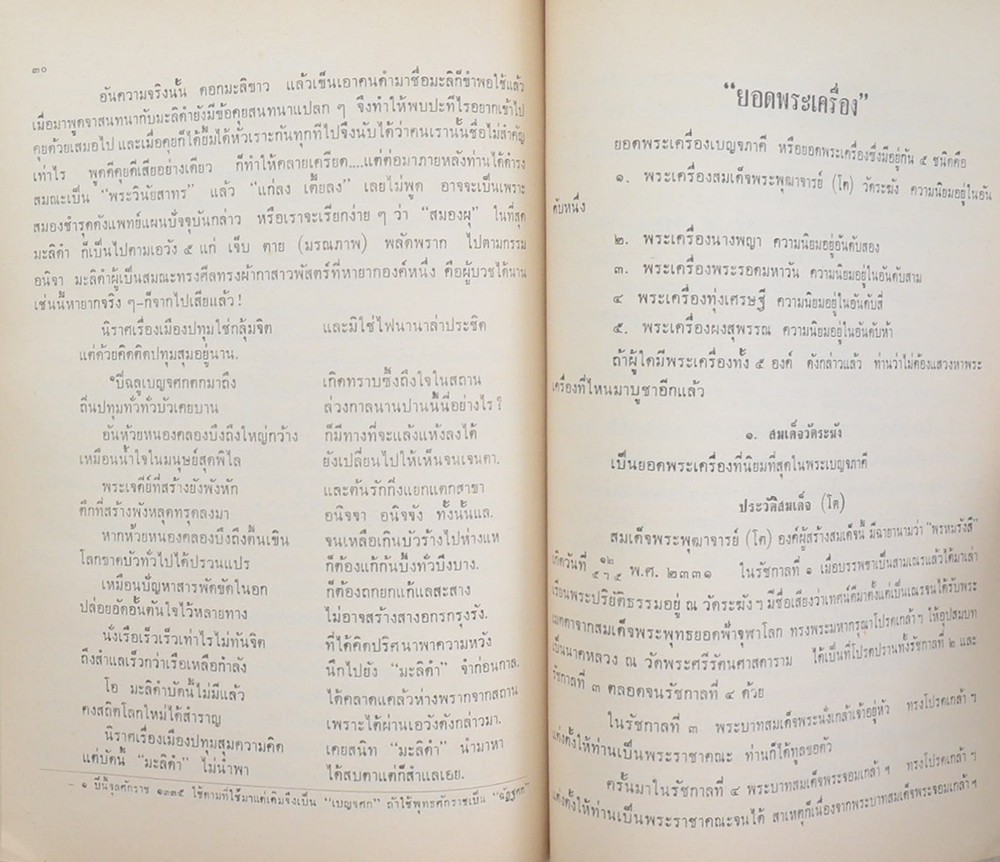 ๓๐
อันความจริงนั้น ดอกมะลิขาว แล้วเข็นเอาคนดำมาชื่อมะลิก็ขำพอใช้แล้ว
เมื่อมาพูดจาสนทนากับมะลิดำยังมีข้อคุยสนทนาแปลก ๆ จึงทำให้พบปะทีไรอยากเข้าไป
คุยด้วยเสมอไป และเมื่อคุยก็ได้ยิ้มได้หัวเราะกันทุกทีไปจึงนับได้ว่าคนเรานั้นชื่อไม่สำคัญ
เท่าไร พูดดีคุยดีเสียอย่างเดียว ก็ทำให้คลายเครียด....แต่ต่อมาภายหลังท่านได้ดำรง
สมณะเป็น “พระวินัยสาทร” แล้ว “แก่ลง เตี้ยลง” เลยไม่พูด อาจจะเป็นเพราะ
สมองชำรุดดังแพทย์แผนปัจจุบันกล่าว หรือเราจะเรียกง่าย ๆ ว่า “สมองผุ” ในที่สุด
มะลิดำ ก็เป็นไปตามเอวัง ๕ แก่ เจ็บ ตาย (มรณภาพ) พลัดพราก ไปตามกรรม
อนิจา มะลิดำผู้เป็นสมณะทรงศีลทรงผ้ากาสาวพัสตร์ที่หายากองค์หนึ่ง คือผู้บวชได้นาน
เช่นนี้หายากจริง ๆ-ก็จากไปเสียแล้ว!
นิราศเรื่องเมืองปทุมใช่กลุ้มจิต และมิใช่ไฟนานาล่าประชิด
แต่ด้วยคิดคิดปทุมสุมอยู่นาน.
๑ปีฉลูเบญจศกตกมาถึง เกิดทราบซึ้งถึงใจในสถาน
ถิ่นปทุมทั่วทั่วบัวเคยบาน ล่วงกาลนานปานนี้นี่อย่างไร?
อันห้วยหนองคลองบึงถึงใหญ่กว้าง ก็มีทางที่จะแล้งแห้งลงได้
เหมือนน้ำใจในมนุษย์สุดพิไล ยังเปลี่ยนไปให้เห็นจนเจนตา.
พระเจดีย์ที่สร้างยังพังหัก และต้นรักกิ่งแยกแตกสาขา
ตึกที่สร้างพังหลุดทรุดลงมา อนิจจา อนิจจัง ทั้งนั้นแล.
หากห้วยหนองคลองบึงถึงตื้นเขิน จนเหลือเกินบัวร้างไปห่างแห
โลกขาดบัวทั่วไปได้ปรวนแปร ก็ต้องแก้กันบึ้งทั่วบึงบาง.
เหมือนปัญหาสารพัดขัดในอก ก็ต้องถกยกแก้แลสะสาง
ปล่อยอัดอั้นตันใจไว้หลายทาง ไม่อาจสร้างสางอกรกรุงรัง.
นั่งเรือเร็วเร็วเท่าไรไม่ทันจิต ที่ได้คิดปริศนาพาความหวัง
ถึงสำแลเร็วกว่าเรือเหลือกำลัง นึกไปยัง “มะลิดำ” จำก่อนกาล.
โอ มะลิดำบัดนี้ไม่มีแล้ว ได้คลาดแคล้วห่างพรากจากสถาน
คงสถิตโลกใหม่ได้สำราญ เพราะได้ผ่านเอวังดังกล่าวมา.
นิราศเรื่องเมืองปทุมสุมความคิด เคยสนิท “มะลิดำ” นำมาหา
แต่บัดนี้ “มะลิดำ” ไม่นำพา ได้สบตาแต่ก็สำแลเธย.
- ๑ ปีนี้จุลศักราช ๑๓๓๕ ใช้ตามที่ใช้มาแต่เดิมจึงเป็น “เบญจศก” ถ้าใช้พุทธศักราชเป็น “ฉัฏฐศก”
“ยอดพระเครื่อง”
ยอดพระเครื่องเบญจภาคี หรือยอดพระเครื่องซึ่งมีอยู่กัน ๕ ชนิดคือ
๑. พระเครื่องสมเด็จพระพุฒาจารย์ (โต) วัดระฆัง ความนิยมอยู่ในอัน
ดับหนึ่ง
๒. พระเครื่องนางพญา ความนิยมอยู่อันดับสอง
๓. พระเครื่องพระรอดมหาวัน ความนิยมอยู่ในอันดับสาม
๔ พระเครื่องทุ่งเศรษฐี ความนิยมอยู่ในอันดับสี่
๕. พระเครื่องผงสุพรรณ ความนิยมอยู่ในอันดับห้า
ถ้าผู้ใดมีพระเครื่องทั้ง ๕ องค์ ดังกล่าวแล้ว ท่านว่าไม่ต้องแสวงหาพระ
เครื่องที่ไหนมาบูชาอีกแล้ว
๑. สมเด็จวัดระฆัง
เป็นยอดพระเครื่องที่นิยมที่สุดในพระเบญจภาคี
ประวัติสมเด็จ (โต)
สมเด็จพระพุฒาจารย์ (โต) องค์ผู้สร้างสมเด็จนี้ มีฉายานามว่า “พรหมรังสี”
เกิดวันที่ ๑๒/๕ฯ๕ พ.ศ. ๒๓๓๑ ในรัชกาลที่ ๑ เมื่อบรรพชาเป็นสามเณรแล้วได้มาเล่า
เรียนพระปริยัติธรรมอยู่ ณ วัดระฆังฯ มีชื่อเสียงว่าเทศน์ดีมาตั้งแต่เป็นเณรจนได้รับพระ
เมตตาจากสมเด็จพระพุทธยอดฟ้าจุฬาโลก ทรงพระมหากรุณาโปรดเกล้าฯ ให้อุปสมบท
เป็นนาคหลวง ณ วัดพระศรีรัตนศาสดาราม ได้เป็นที่โปรดปรานทั้งรัชกาลที่ ๒ และ
รัชกาลที่ ๓ ตลอดจนรัชกาลที่ ๔ ด้วย
ในรัชกาลที่ ๓ พระบาทสมเด็จพระนั่งเกล้าเจ้าอยู่หัว ทรงโปรดเกล้า ฯ
แต่งตั้งให้ท่านเป็นพระราชาคณะ ท่านก็ได้ทูลขอตัว
ครั้นมาในรัชกาลที่ ๔ พระบาทสมเด็จพระจอมเกล้า ฯ ทรงโปรดเกล้า ฯ
แต่งตั้งให้ท่านเป็นพระราชาคณะจนได้ สาเหตุก็เนื่องจากพระบาทสมเด็จพระจอมเกล้า ฯ